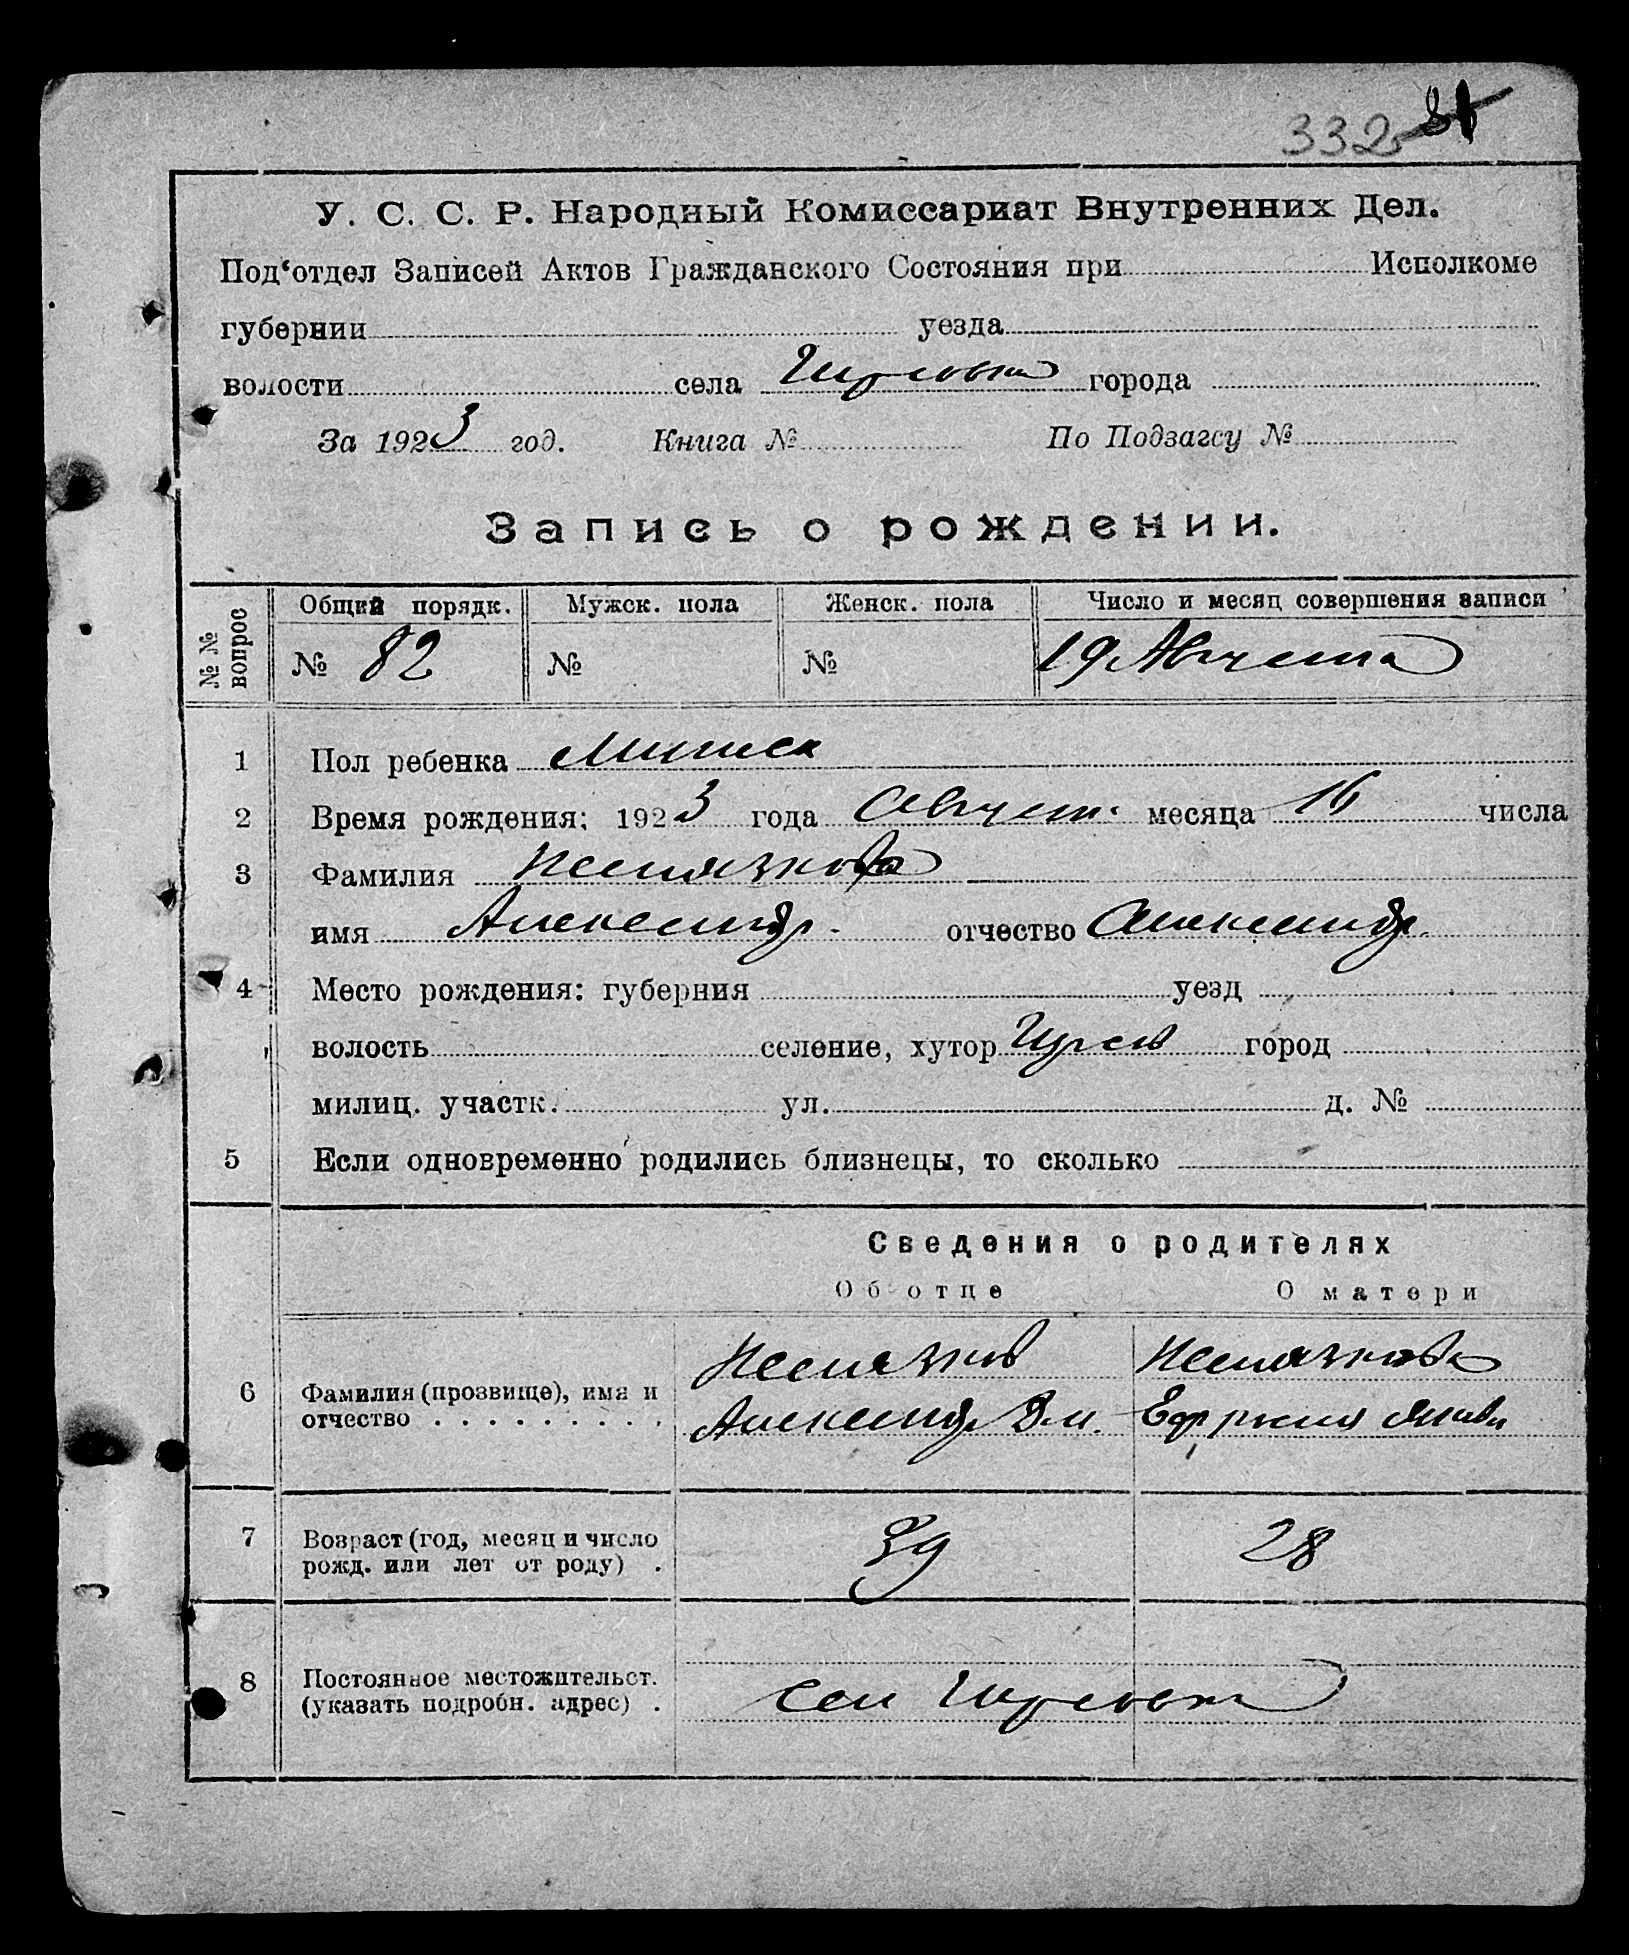 332 81
У. С. С. Р. Народный Комиссариат Внутренних Дел.
Под‘отдел Записей Актов Гражданского Состояния при Исполкоме
губернии уезда
волости села города
За 1923 год. Книга № По Подзагсу №
Запись о рождении.
№ № вопрос Общий порядк. Мужск. пола Женск. пола Число и месяц совершения записи
№ 82 № № 19 Августа
1 Пол ребенка
2 Время рождения: 1923 года Август. месяца 16 числа
3 Фамилия
имя Александр. отчество Александр.
4 Место рождения: губерния уезд
волость селение, хутор город
милиц. участк. ул. д. №
5 Если одновременно родились близнецы, то сколько
Сведения о родителях
Об отце О матери
6 Фамилия (прозвище), имя и
отчество . . . . . . . . . . Александр
7 Возраст (год, месяц и число
рожд. или лет от роду) . 39 28
8 Постоянное местожительст.
(указать подробн. адрес) . сел